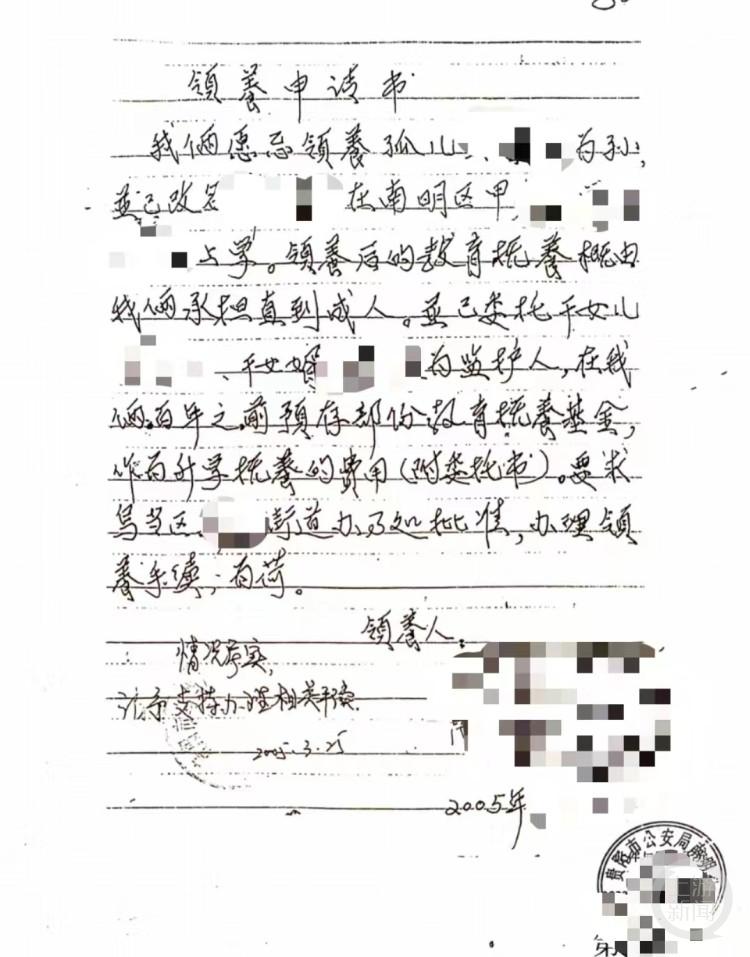 领養申请书
我俩愿意领養孤儿 为孙,
並已改名 在南明区甲
上学。领養后的教育抚養概由
我俩承担直到成人。並已委托干女儿
、干女婿 为监护人,在我
俩百年之前预存部份教育抚養基金,
作为升学抚養的费用(附委托书)。要求
乌当区 街道办了处批准,办理领
養手续;为荷。
领養人:
情况属实,
请予支持办理相关手续.
2005.3.25
2005年
贵阳市公安局南明
上游新闻
第